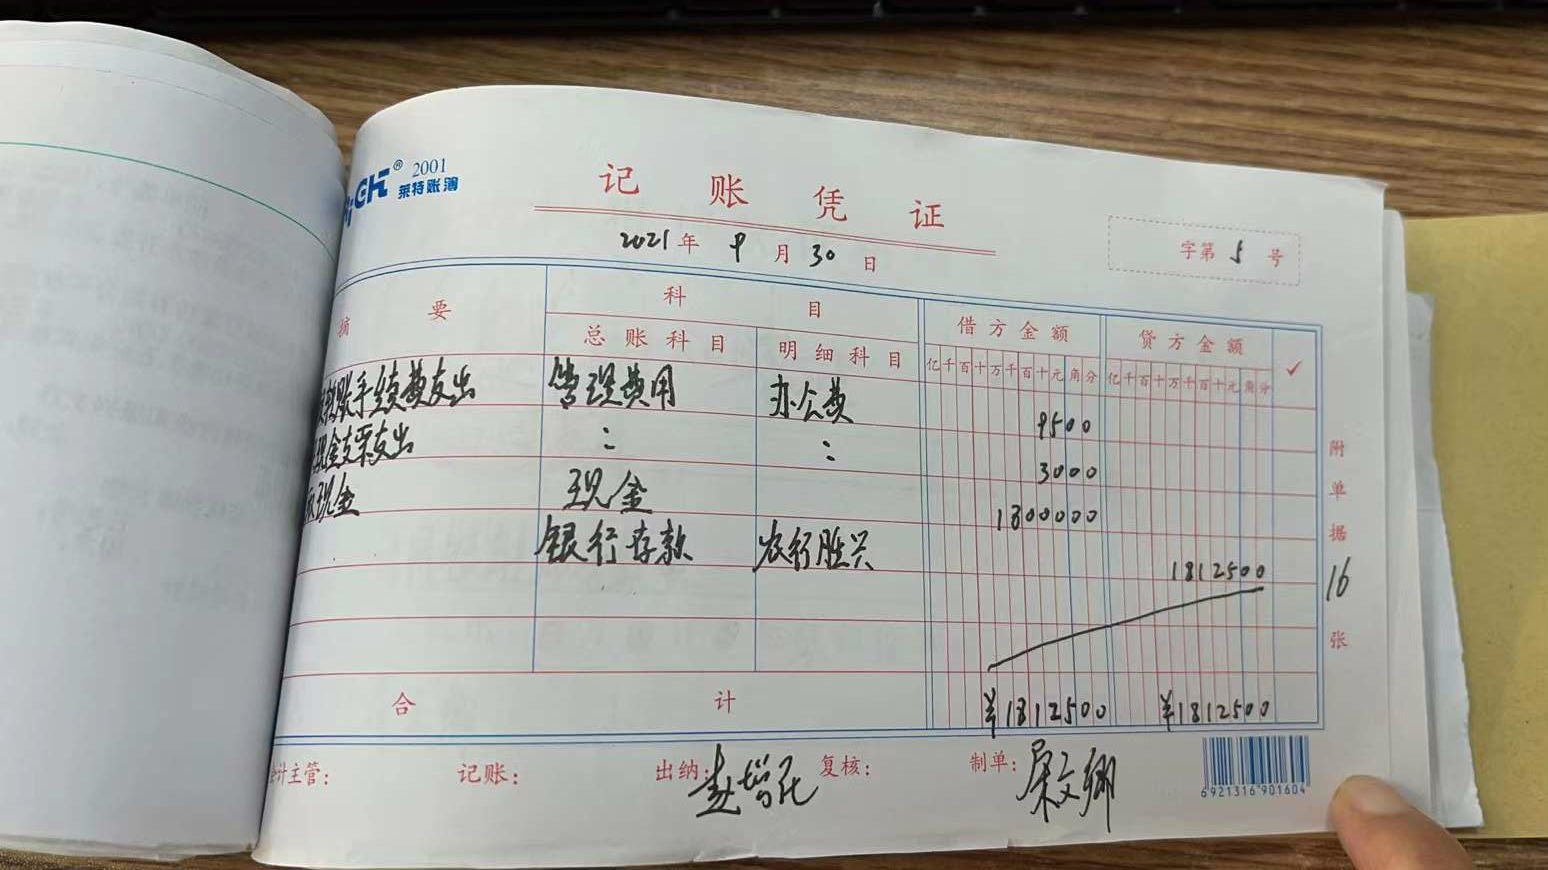 ® 2001
莱特账簿
记账凭证
2021年 9月30日
字第 5 号
摘要 科目 借方金额 贷方金额 ✓
总账科目 明细科目 亿千百十万千百十元角分 亿千百十万千百十元角分
账手续费支出 管理费用 办公费 9500
现金支票支出 : : 3000
现金 现金 1800000
银行存款 农行胜兴 1812500
合计 ¥1812500 ¥1812500
附单据 16 张
会计主管: 记账: 出纳: 赵增 复核: 制单: 屎文卿
6921316901604